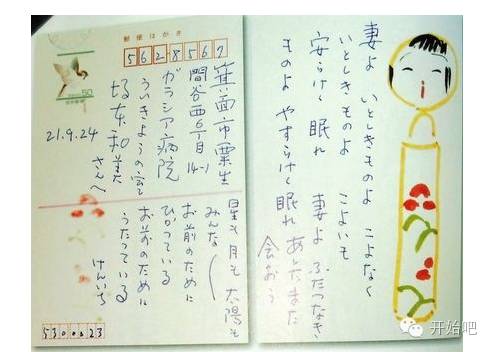 郵便はがき
562-8567
箕面市粟生
間谷西6丁目
14-1
ガラシア病院
ういきょうの室
坂本和美
さんへ
21.9.24
50
星も月も太陽も
みんな
お前のために
ひかっている
お前のために
うたっている
けんいち
妻よ いとしきものよ こよなく
いとしきものよ こよいも
安らけく 眠れ 妻よ ふたつなき
ものよ やすらけく眠れ あしたまた
会おう
开始吧